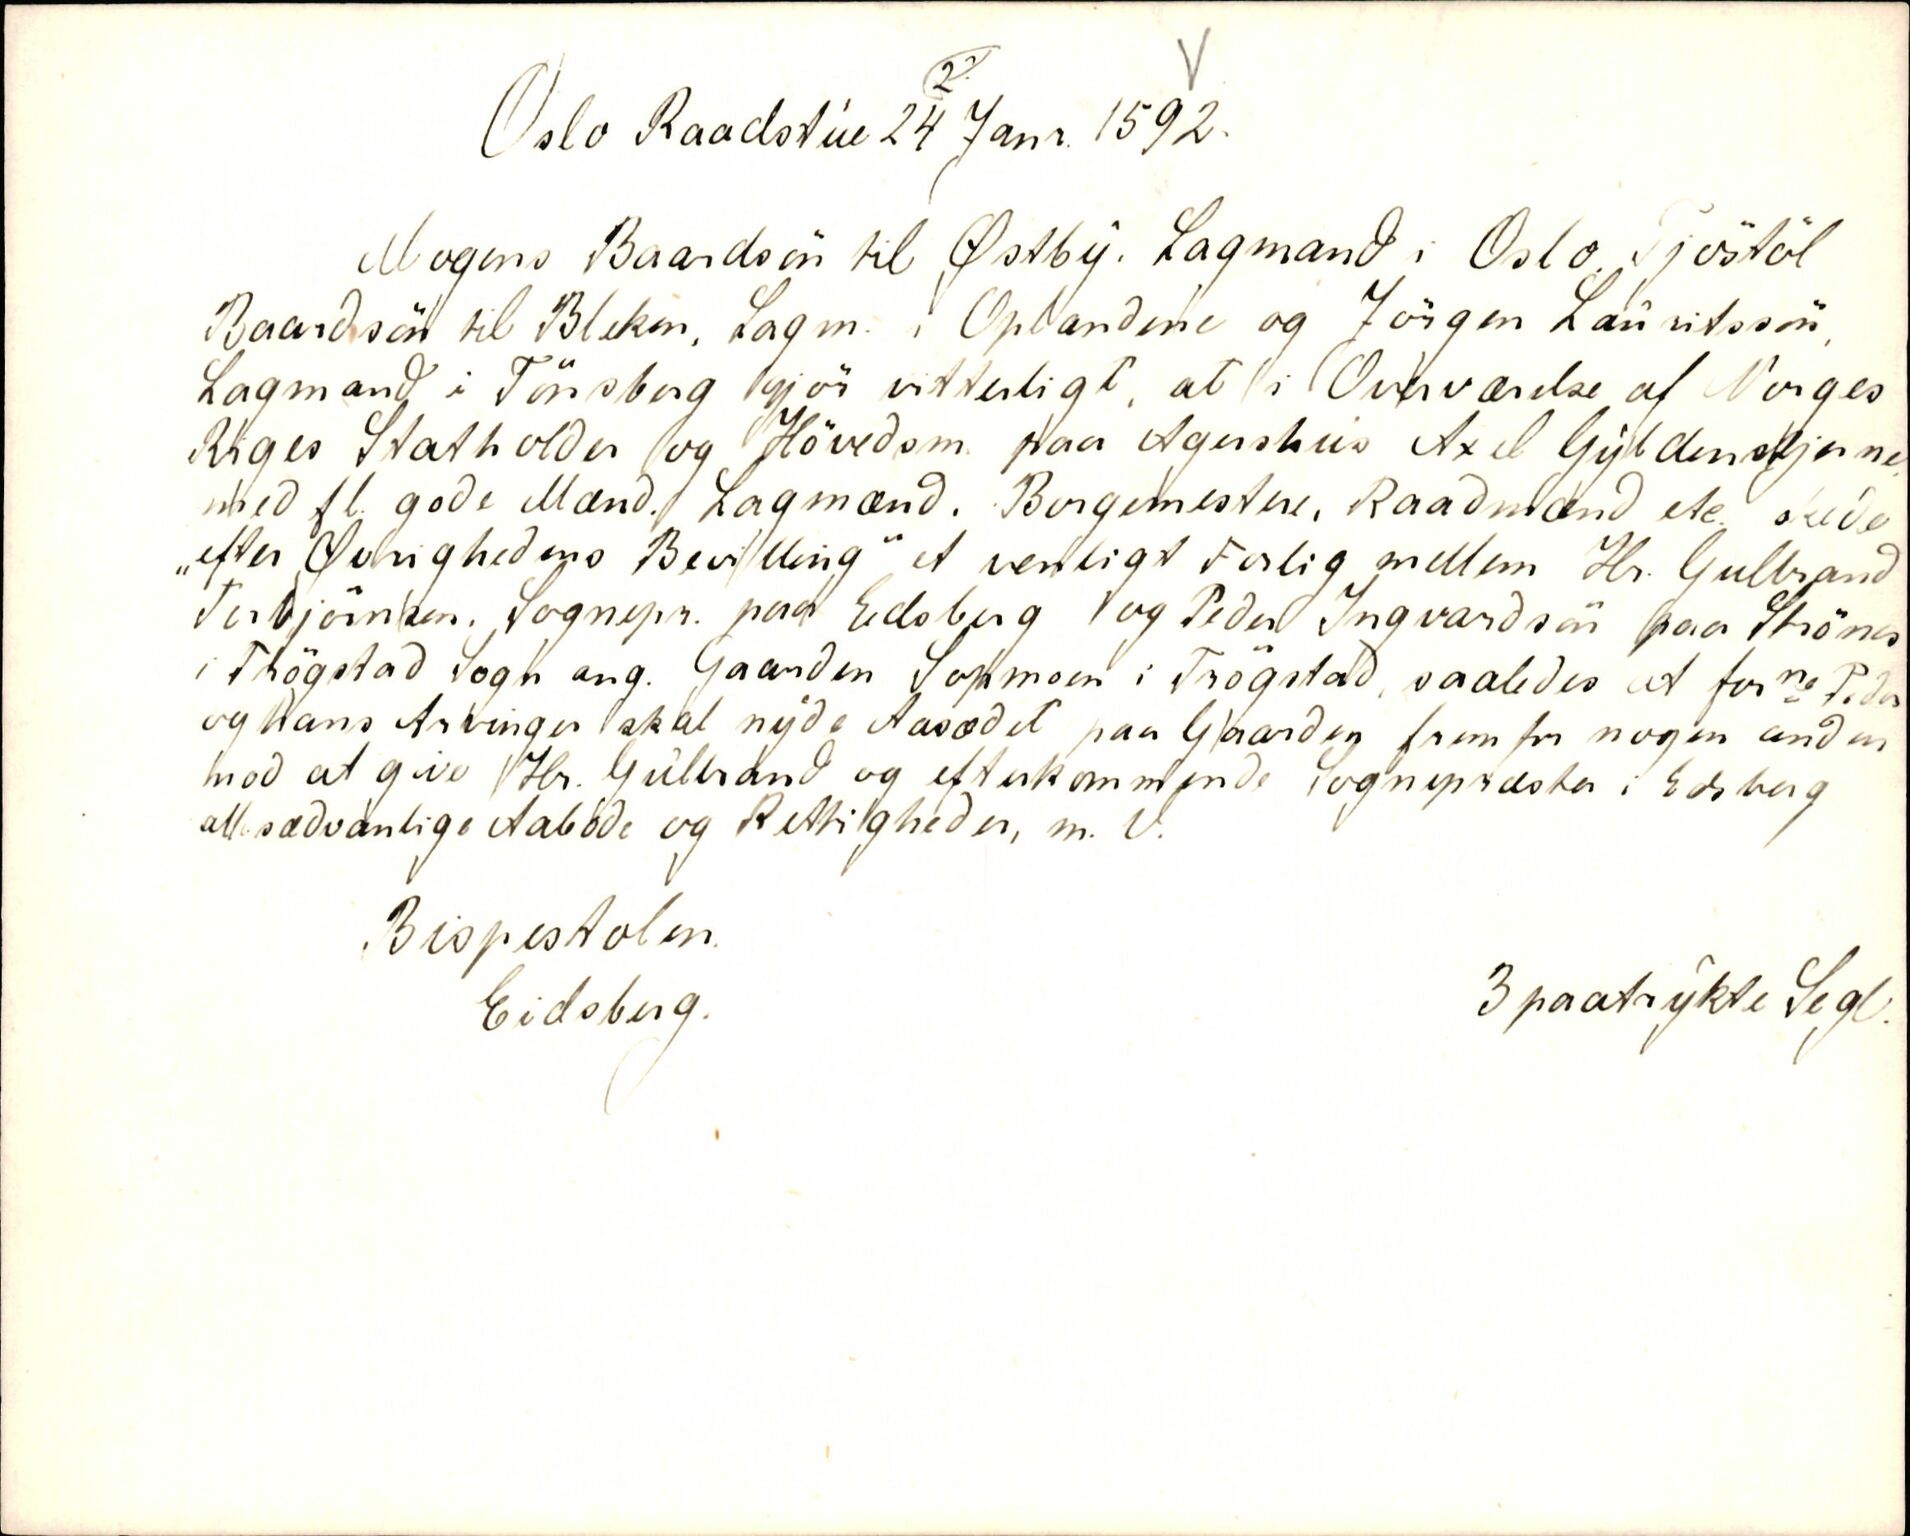 2.
V
Oslo Raadstue 24 Janr. 1592.
Mogens Baardsön til Østby. Lagmand i Oslo, Tjöstöl
Baardsön til Bleken, Lagm. i Oplandene og Jörgen Lauritssön,
Lagmand i Tönsberg gjör vitterligt, at i Overværelse af Norges
Riges Statholder og Hövedsm. paa Agershus Axel Gyldenstjerne,
med fl. gode Mænd, Lagmænd, Borgemestere, Raadmænd etc. skede
„efter Øvrighedens Bevilling" et venligt Forlig mellem Hr. Gulbrand
Torbjörnsen, Sognepr. paa Edsberg og Peder Ingvardsön paa Strönes
i Thögstad Sogn ang. Gaarden Sopmoen i Trögstad, saaledes at forne Peder
og hans Arvinger skal nyde Aasædet paa Gaarden frem for nogen anden
mod at give Hr. Gulbrand og efterkommende Sognepræster i Edsberg
alle sædvanlige Aabode og Rettigheder, m. V.
Bispestolen.
Eidsberg.
3 paatrykte Segl.